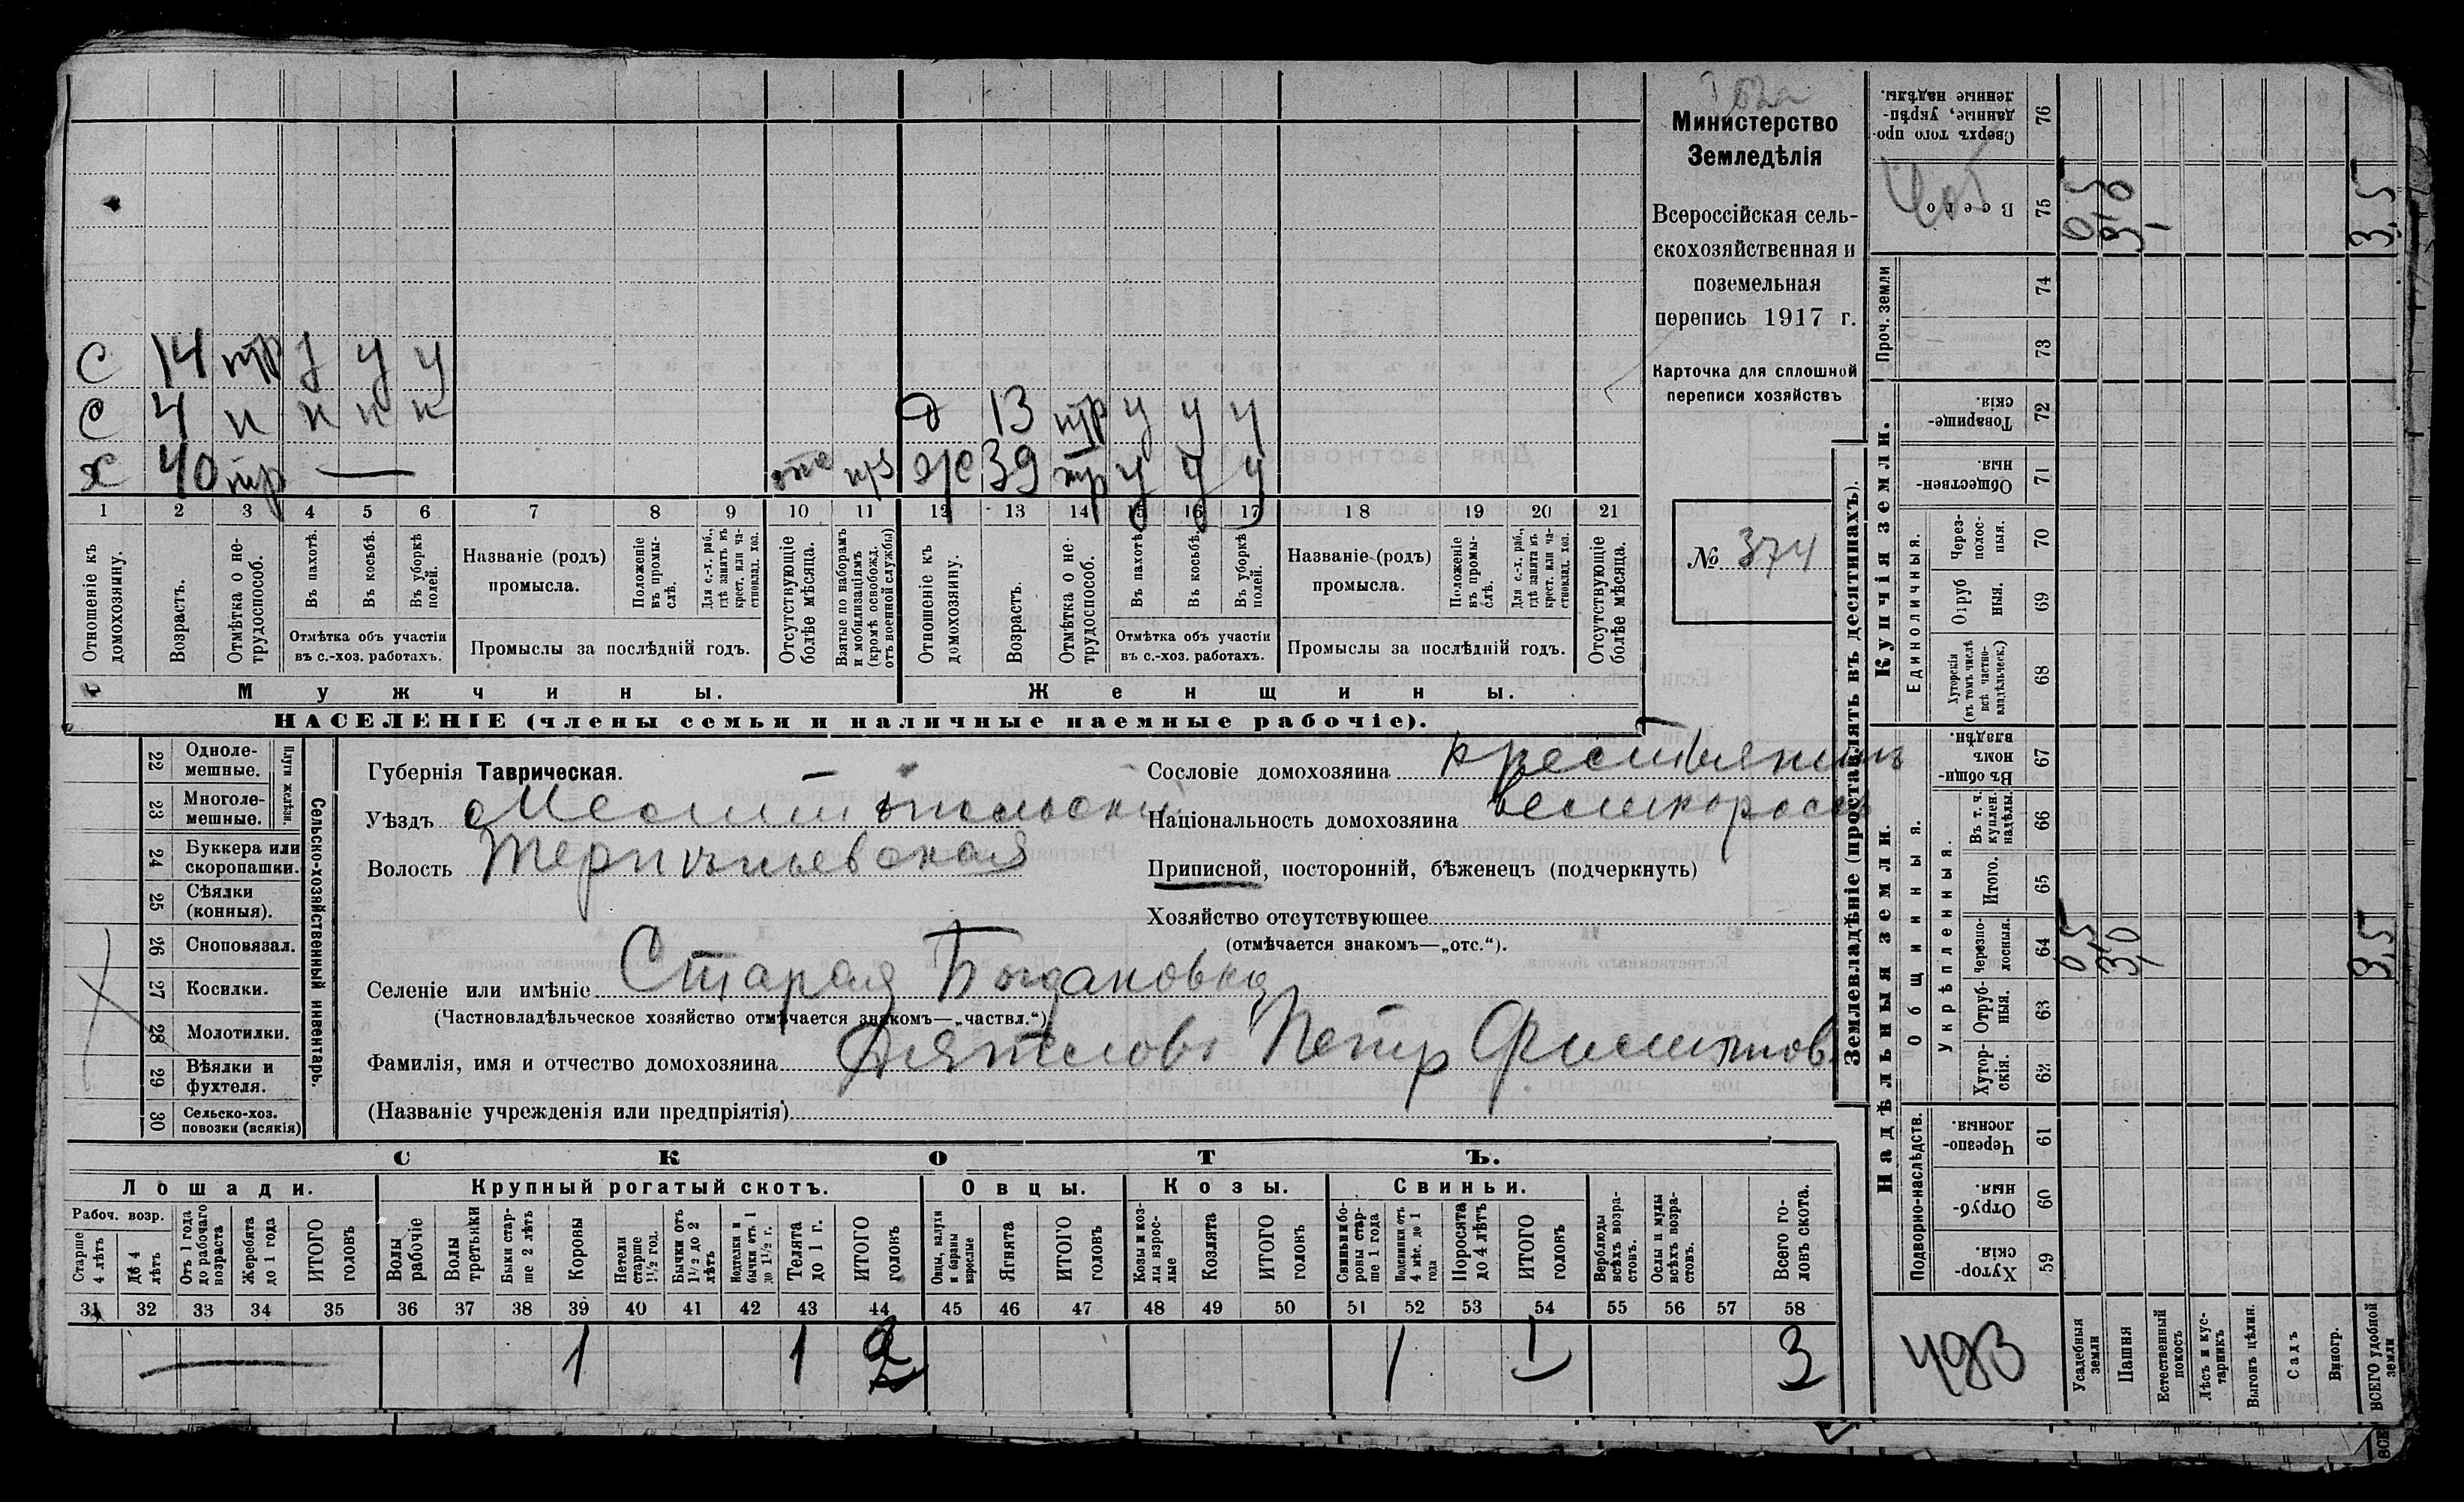 С 14 тр у у у
С 4 н н н н
д 13 тр у у у
х 40 тр —
отс
ж 39 тр у у у
1 2 3 4 5 6 7 8 9 10 11 12 13 14 15 16 17 18 19 20 21
Отношеніе къ домохозяину.
Возрастъ.
Отмѣтка о нетрудоспособ.
Въ пахотѣ.
Въ косьбѣ.
Въ уборкѣ полей.
Отмѣтка объ участіи
въ с.-хоз. работахъ.
Названіе (родъ)
промысла.
Положеніе въ промыслѣ.
Для с.-х. раб., гдѣ занятъ въ крест. или частновлад. хоз.
Промыслы за послѣдній годъ.
Отсутствующіе болѣе мѣсяца.
Взятые по наборамъ и мобилизаціямъ (кромѣ освобожд. отъ военной службы)
Отношеніе къ домохозяину.
Возрастъ.
Отмѣтка о нетрудоспособ.
Въ пахотѣ.
Въ косьбѣ.
Въ уборкѣ полей.
Отмѣтка объ участіи
въ с.-хоз. работахъ.
Названіе (родъ)
промысла.
Положеніе въ промыслѣ.
Для с.-х. раб., гдѣ занята въ крест. или частновлад. хоз.
Промыслы за послѣдній годъ.
Отсутствующіе болѣе мѣсяца.
Мужчины.
Женщины.
НАСЕЛЕНІЕ (члены семьи и наличные наемные рабочіе).
Министерство
Земледѣлія
Всероссійская сель-
скохозяйственная и
поземельная
перепись 1917 г.
Карточка для сплошной
переписи хозяйствъ
№ 374
22 Одноле-
мешные.
23 Многоле-
мешные.
Плуги желѣзн.
24 Буккера или
скоропашки.
25 Сѣялки
(конныя).
26 Сноповязал.
27 Косилки.
28 Молотилки.
29 Вѣялки и
фухтеля.
30 Сельско-хоз.
повозки (всякія)
Сельско-хозяйственный инвентарь.
Губернія Таврическая.
Уѣздъ Мелитопольскій
Волость Терпѣньевская
Селеніе или имѣніе Старая Богдановка
(Частновладѣльческое хозяйство отмѣчается знакомъ—„частвл.“)
Фамилія, имя и отчество домохозяина Дятловъ Петръ Филиппов
(Названіе учрежденія или предпріятія)
Сословіе домохозяина крестьянинъ
Національность домохозяина великороссъ
Приписной, посторонній, бѣженецъ (подчеркнуть)
Хозяйство отсутствующее
(отмѣчается знакомъ—„отс.“).
СКОТЪ.
Лошади. Крупный рогатый скотъ. Овцы. Козы. Свиньи.
Рабоч. возр.
Старше 4 лѣтъ
До 4 лѣтъ
Отъ 1 года до рабочаго возраста
Жеребята до 1 года
ИТОГО головъ
Волы рабочіе
Волы третьяки
Быки старше 2 лѣтъ
Коровы
Нетели старше 1½ год.
Бычки отъ 1½ до 2 лѣтъ
Подтелки и бычки отъ 1 до 1½ г.
Телята до 1 г.
ИТОГО головъ
Овцы, валухи и бараны взрослые
Ягнята
ИТОГО головъ
Козы и козлы взрослые
Козлята
ИТОГО головъ
Свиньи и боровы старше 1 года
Подсвинки отъ 4 мѣс. до 1 года
Поросята до 4 лѣтъ
ИТОГО головъ
Верблюды всѣхъ возрастовъ.
Ослы и мулы всѣхъ возрастовъ.
Всего головъ скота.
31 32 33 34 35 36 37 38 39 40 41 42 43 44 45 46 47 48 49 50 51 52 53 54 55 56 57 58
— 1 1 2 1 1 3
Землевладѣніе (проставлять въ десятинахъ).
Надѣльныя земли.
Купчія земли.
Проч. земли
Подворно-наслѣдств.
Общинныя.
Укрѣпленныя.
Единоличныя.
Сверхъ того проданные, укрѣпленные надѣлы. 76
Всего 75 0,5 3,0 3,5
74
73
Товарищескія. 72
Общественныя. 71
Черезполосныя. 70
Отрубныя. 69
Хуторскія (въ томъ числѣ всѣ частновладѣльческ.) 68
Въ общинномъ владѣн. 67
Въ т. ч. куплен. надѣлы. 66
Итого. 65
Черезполосныя. 64 0,5 3,0 3,5
Отрубныя. 63
Хуторскія. 62
Черезполосныя. 61
Отрубныя. 60
Хуторскія. 59
493
Усадебныя земли
Пашня
Естественный покосъ
Лѣсъ и кустарникъ
Выгонъ цѣлин.
Садъ
Виногр.
ВСЕГО удобной земли